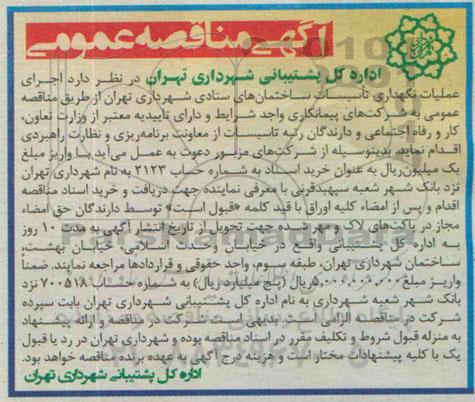 آگهی مناقصه عمومی
اداره کل پشتیبانی شهرداری تهران در نظر دارد اجرای
عملیات نگهداری تأسیسات ساختمان‌های ستادی شهرداری تهران از طریق مناقصه
عمومی به شرکت‌های پیمانکاری واجد شرایط و دارای تاییدیه معتبر از وزارت تعاون،
کار و رفاه اجتماعی و دارندگان رتبه تاسیسات از معاونت برنامه‌ریزی و نظارت راهبردی
اقدام نماید. بدینوسیله از شرکت‌های مزبور دعوت به عمل می‌آید با واریز مبلغ
یک میلیون‌ریال به عنوان خرید اسناد به شماره حساب ۲۱۲۳ به نام شهرداری تهران
نزد بانک شهر شعبه سپهبدقرنی با معرفی نماینده جهت دریافت و خرید اسناد مناقصه
اقدام و پس از امضاء کلیه اوراق با قید کلمه «قبول است» توسط دارندگان حق امضاء
مجاز در پاکت‌های لاک و مهر شده جهت تحویل از تاریخ انتشار آگهی به مدت ۱۰ روز
به اداره کل پشتیبانی واقع در خیابان وحدت اسلامی، خیابان بهشت،
ساختمان شهرداری تهران، طبقه سوم، واحد حقوقی و قراردادها مراجعه نمایند. ضمناً
واریز مبلغ ۵،۰۰۰،۰۰۰،۰۰۰ریال (پنج میلیارد ریال) به شماره حساب ۷۰۰۵۱۸ نزد
بانک شهر شعبه شهرداری به نام اداره کل پشتیبانی شهرداری تهران بابت سپرده
شرکت در مناقصه الزامی است. بدیهی است شرکت در مناقصه و ارائه پیشنهاد
به منزله قبول شروط و تکلیف مقرر در اسناد مناقصه بوده و شهرداری تهران در رد یا قبول
یک یا کلیه پیشنهادات مختار است و هزینه درج آگهی به عهده برنده مناقصه خواهد بود.
اداره کل پشتیبانی شهرداری تهران